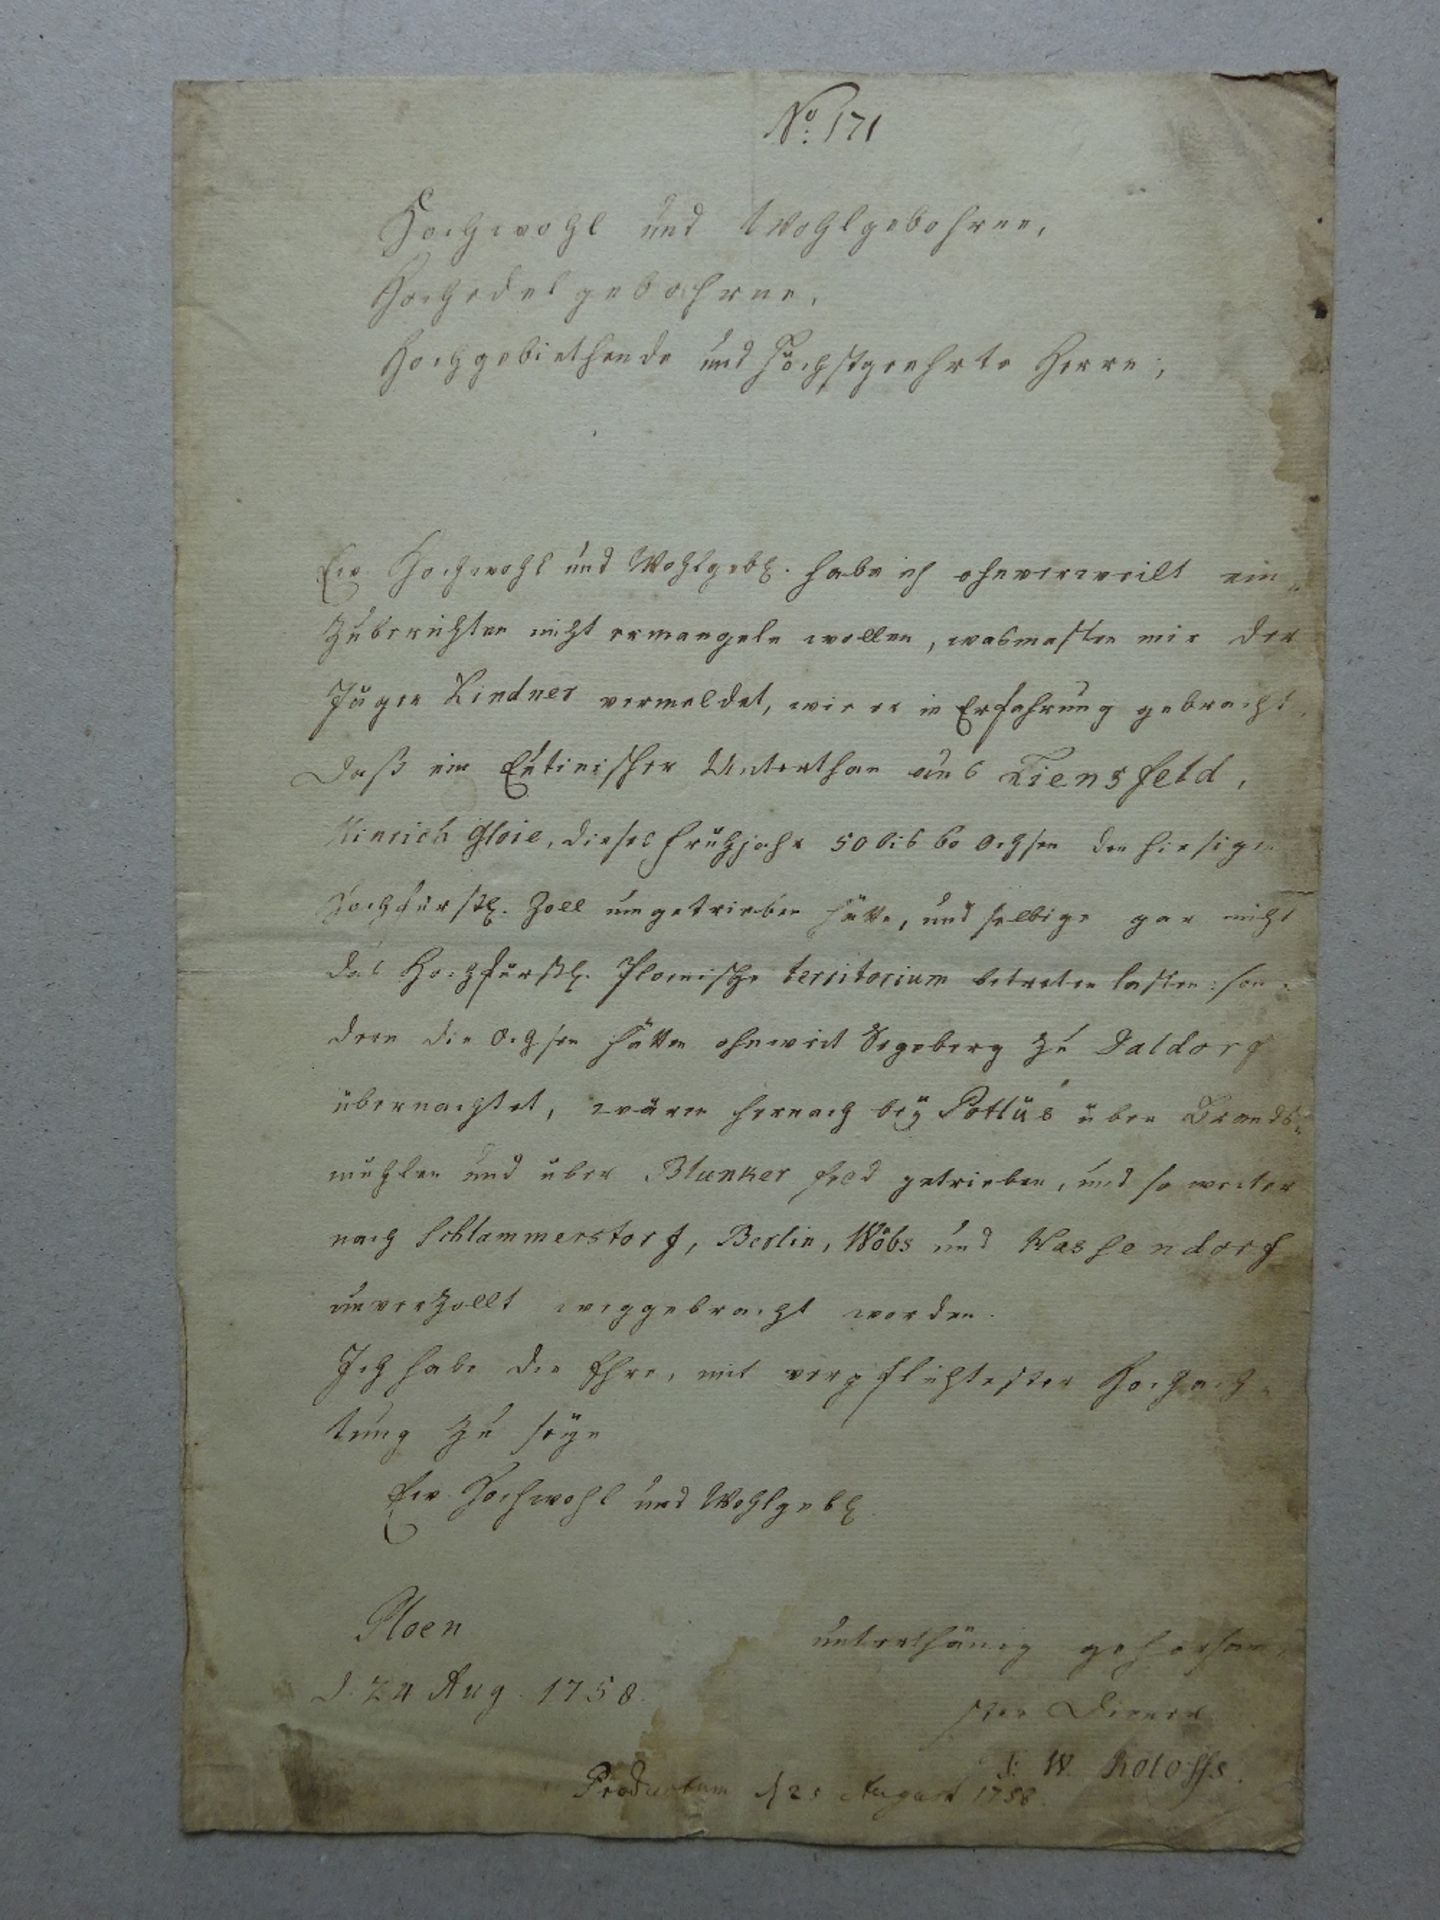 No: 171
Hochwohl und Wohlgebohrne,
Hochedelgebohrne,
Hochgebiethende und höchstgeehrte Herrn;
Ew. Hochwohl und Wohlgebh. habe ich ohnverweilt ein„
zuberichten nicht ermangeln wollen, wasmasten mir der
Jäger Lindner vermeldet, wie er in Erfahrung gebracht,
daß ein Eutinischer Unterthan aus Tiensfeld,
Hinrich Gloie, dieses Frühjahr 50 bis 60 Ochsen den hiesigen
Hochfürstl. Zoll umgetrieben hätte, und selbige gar nicht
das Hochfürstl. Ploenische territorium betreten lasten: son„
dern die Ochsen hätten ohnweit Segeberg zu Daldorf
übernachtet, wären hernach beÿ Potlüs über Brands„
mühlen und über Blunker Feld getrieben, und so weiter
nach Schlammerstorf, Berlin, Wöbs und Hassendorf
unverzollt weggebracht worden.
Ich habe die Ehre, mit verpflichtester Hochach„
tung zu seÿn
Ew. Hochwohl und Wohlgebh.
Ploen
d. 24 Aug. 1758.
unterthänig gehorsam„
ster Diener
J. W.
Productum d 25 August 1758.